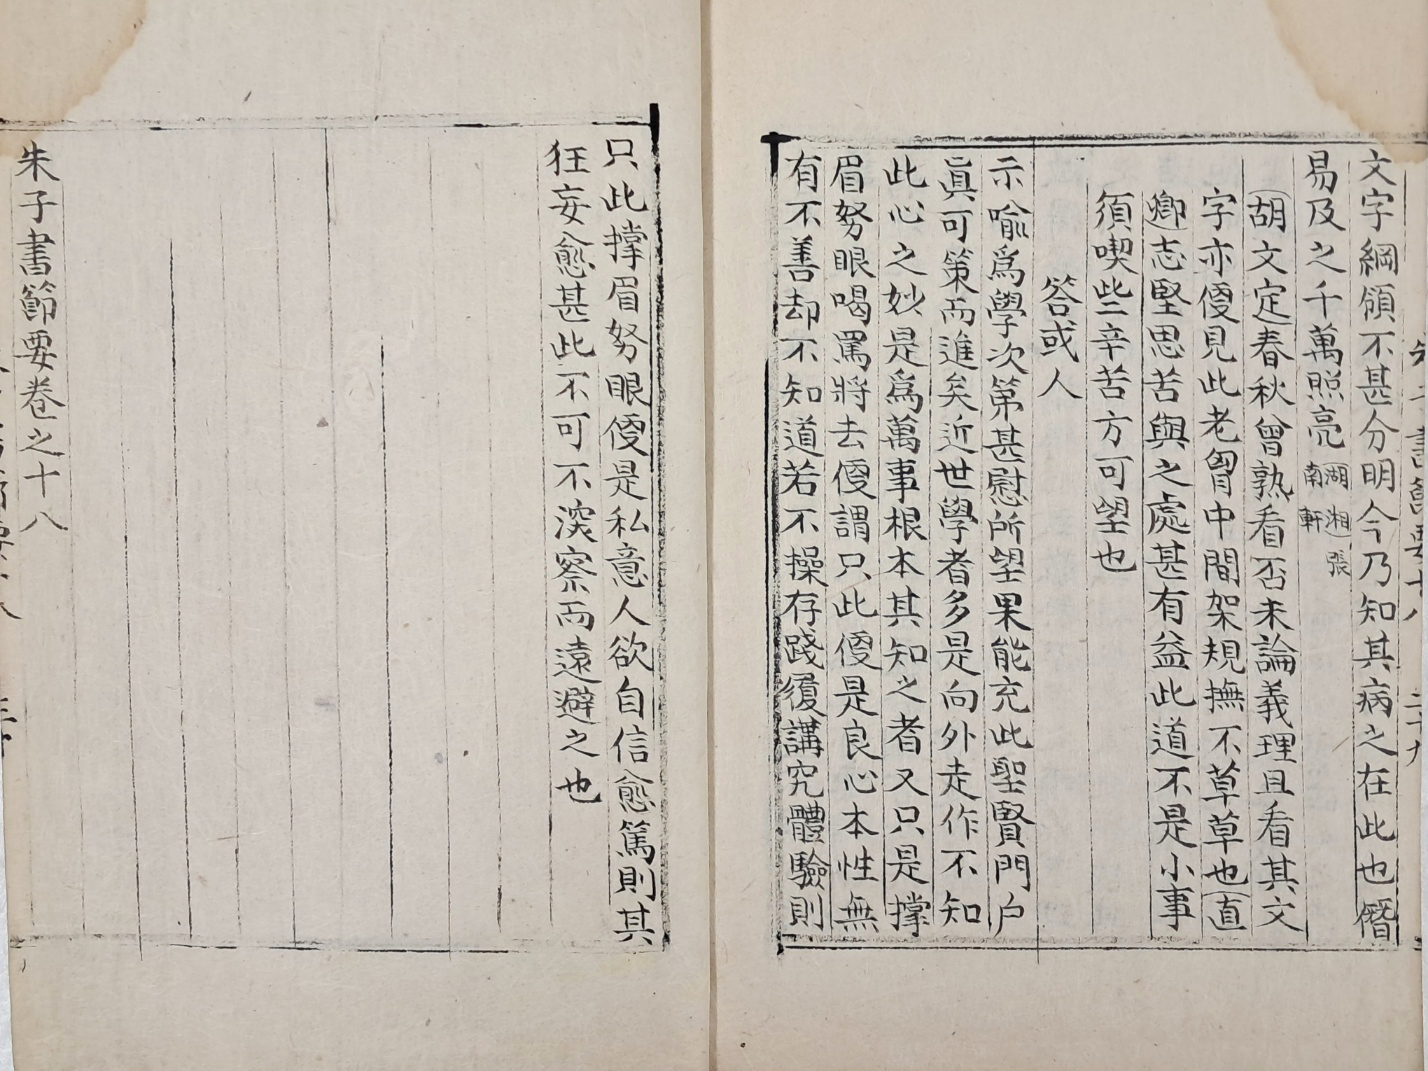 文字綱領不甚分明今乃知其病之在此也僭
易及之千萬照亮湖湘張
南軒
胡文定春秋曾熟看否未論義理且看其文
字亦便見此老胷中間架規撫不草草也直
卿志堅思苦與之處甚有益此道不是小事
須喫些辛苦方可望也
答或人
示喻爲學次第甚慰所望果能充此聖賢門户
眞可策而進矣近世學者多是向外走作不知
此心之妙是爲萬事根本其知之者又只是撑
眉努眼喝罵將去便謂只此便是良心本性無
有不善却不知道若不操存踐履講究體驗則
只此撑眉努眼便是私意人欲自信愈篤則其
狂妄愈甚此不可不深察而遠避之也
朱子書節要卷之十八